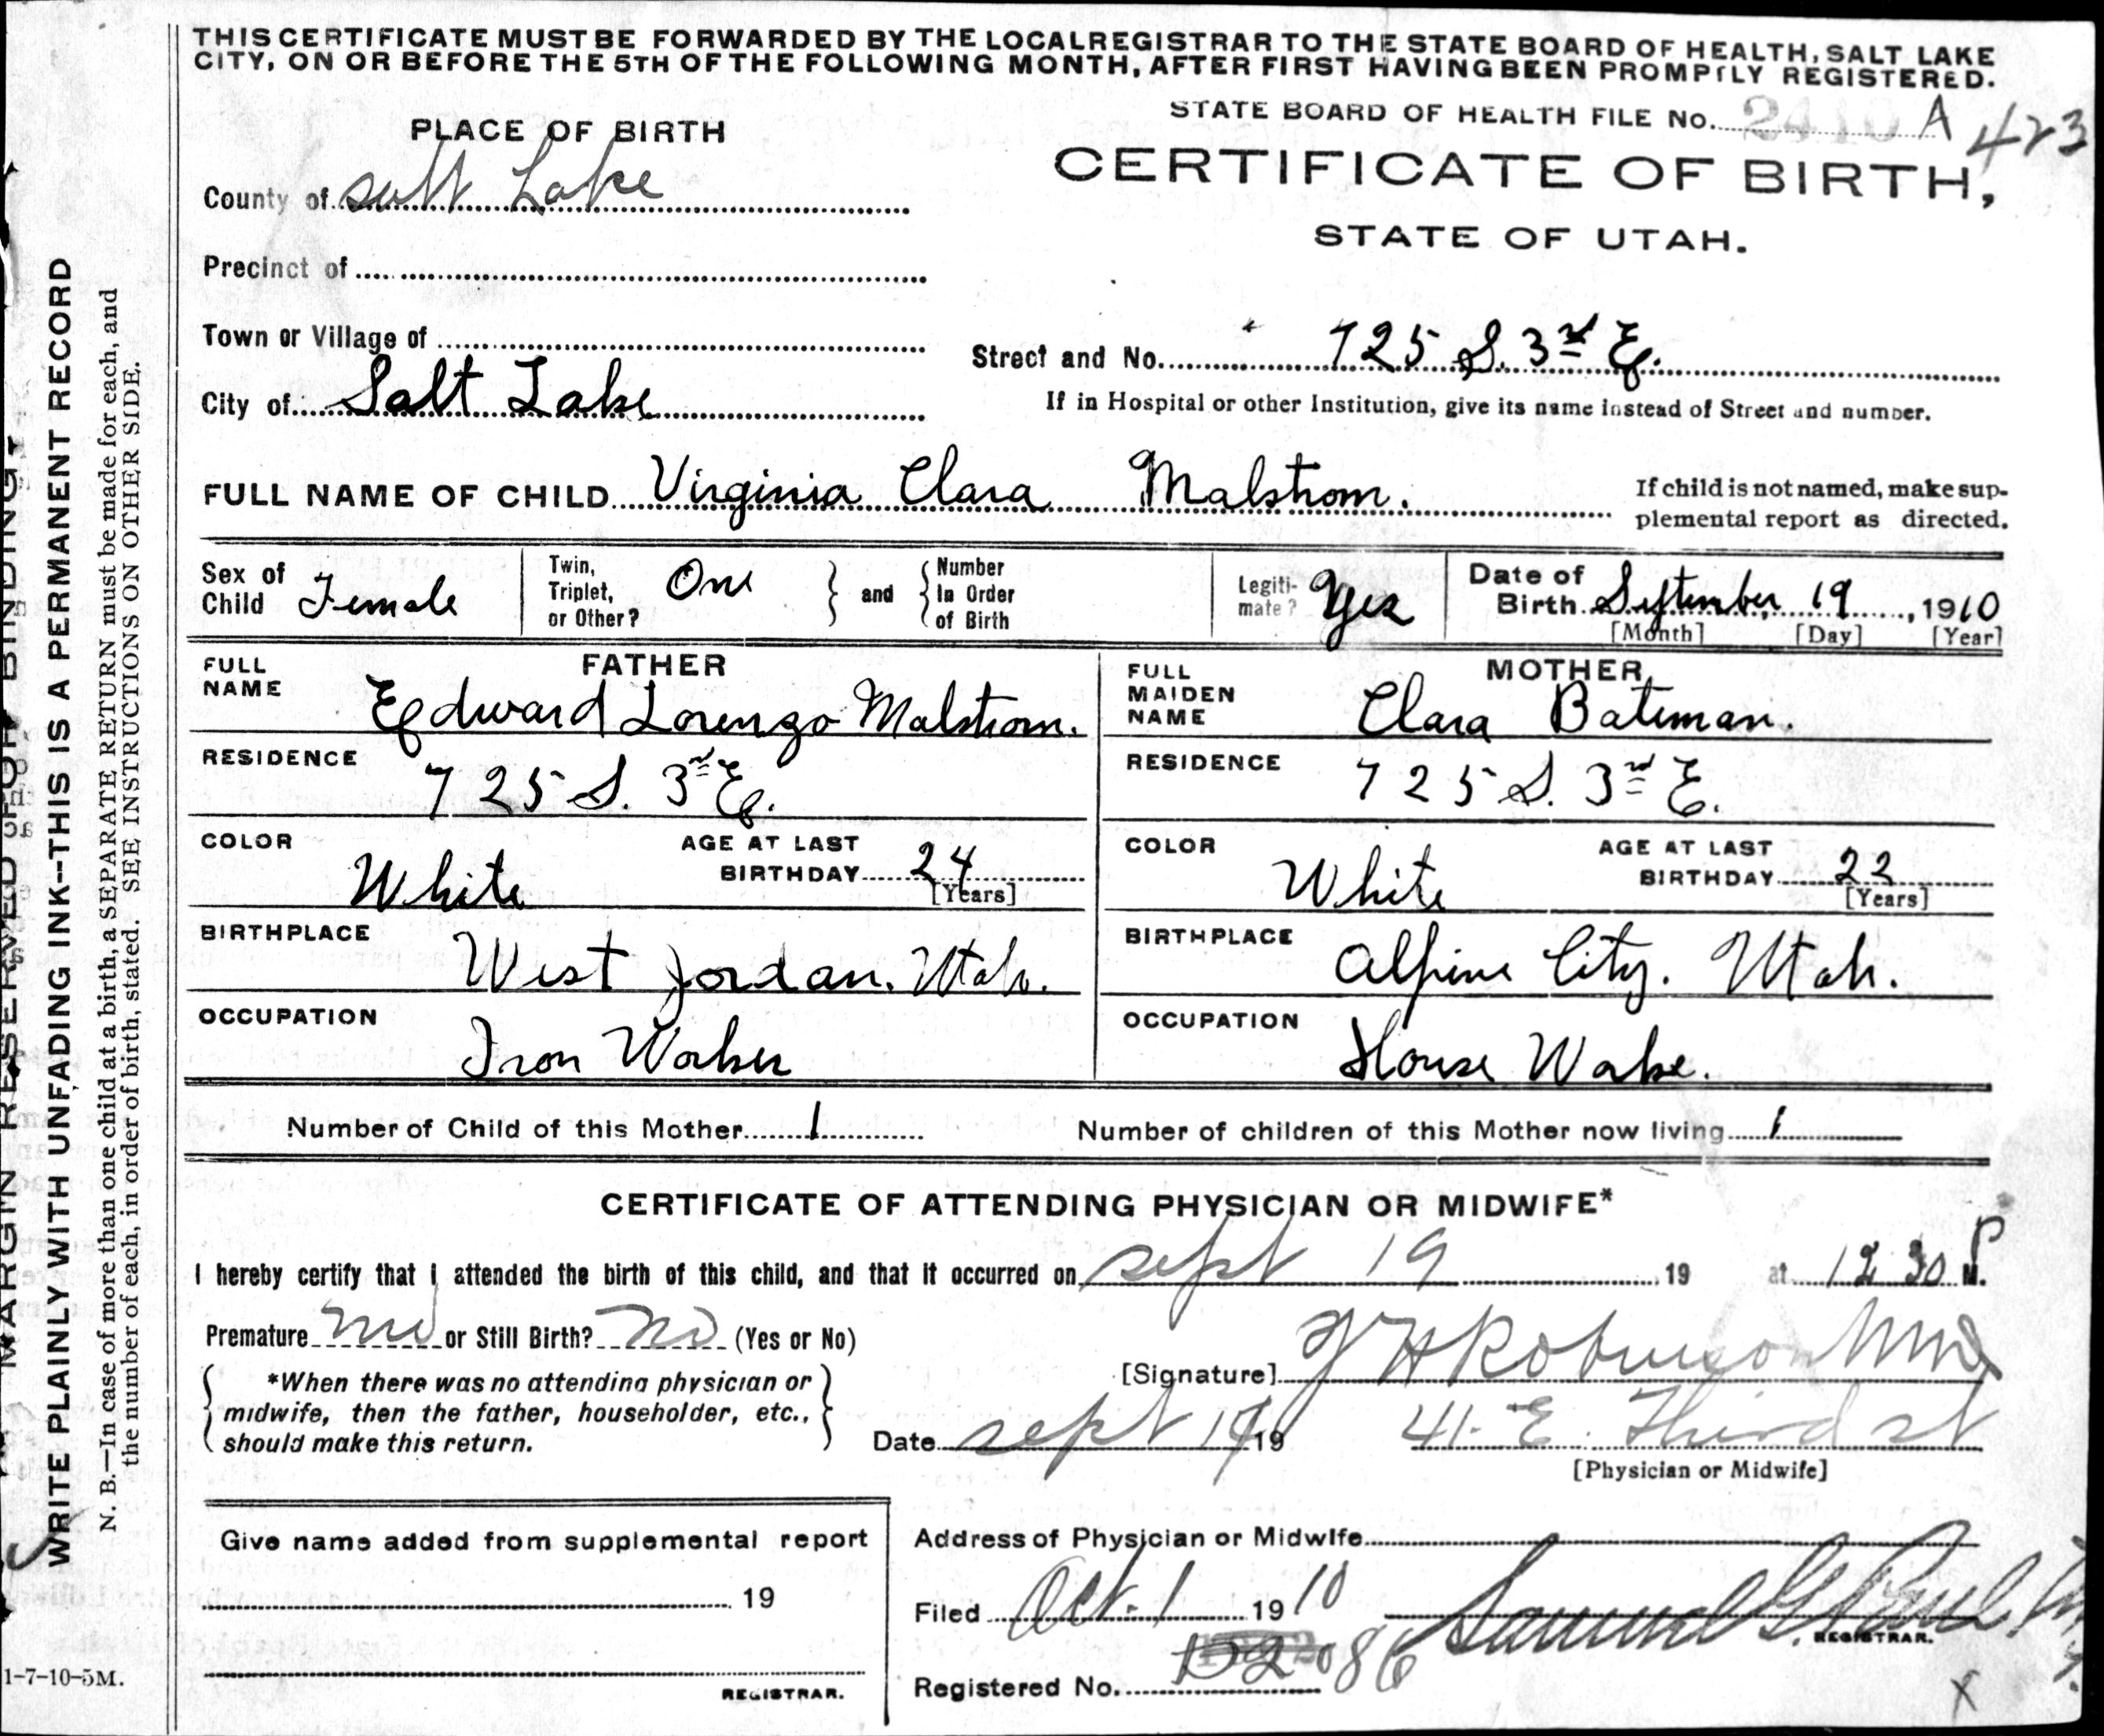 THIS CERTIFICATE MUST BE FORWARDED BY THE LOCAL REGISTRAR TO THE STATE BOARD OF HEALTH, SALT LAKE
CITY, ON OR BEFORE THE 5TH OF THE FOLLOWING MONTH, AFTER FIRST HAVING BEEN PROMPTLY REGISTERED.
STATE BOARD OF HEALTH FILE No. A 423
PLACE OF BIRTH
CERTIFICATE OF BIRTH,
STATE OF UTAH.
County of Salt Lake
Precinct of
Town or Village of
Street and No. 725 S. 3rd E.
City of Salt Lake
If in Hospital or other Institution, give its name instead of Street and number.
FULL NAME OF CHILD Virginia Clara Malstrom.
If child is not named, make sup-
plemental report as directed.
Sex of Child Female
Twin, Triplet, or Other? One
and
Number In Order of Birth
Legiti-mate? Yes
Date of Birth September 19, 1910
[Month] [Day] [Year]
FATHER
FULL NAME Edward Lorenzo Malstrom.
RESIDENCE 725 S. 3rd E.
COLOR White
AGE AT LAST BIRTHDAY 24
[Years]
BIRTHPLACE West Jordan. Utah.
OCCUPATION Iron Worker
MOTHER
FULL MAIDEN NAME Clara Bateman.
RESIDENCE 725 S. 3rd E.
COLOR White
AGE AT LAST BIRTHDAY 22
[Years]
BIRTHPLACE Alpine City. Utah.
OCCUPATION House Wake.
Number of Child of this Mother 1
Number of children of this Mother now living 1
CERTIFICATE OF ATTENDING PHYSICIAN OR MIDWIFE*
I hereby certify that I attended the birth of this child, and that it occurred on Sept 19 19 at 12 30 P M.
Premature no or Still Birth? no (Yes or No)
*When there was no attending physician or
midwife, then the father, householder, etc.,
should make this return.
[Signature] H Robinson
Date Sept 19 19
41. E. Third st
[Physician or Midwife]
Give name added from supplemental report
19
REGISTRAR.
Address of Physician or Midwife
Filed Oct. 1 1910
Samuel G. Paul
REGISTRAR.
Registered No. 2086
X
1-7-10-5M.
MARGIN RESERVED FOR BINDING.
WRITE PLAINLY WITH UNFADING INK--THIS IS A PERMANENT RECORD
N. B.—In case of more than one child at a birth, a SEPARATE RETURN must be made for each, and
the number of each, in order of birth, stated. SEE INSTRUCTIONS ON OTHER SIDE.